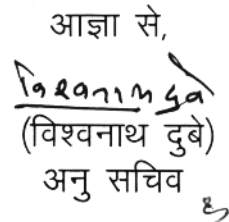 आज्ञा से,
विश्वनाथ दुबे
(विश्वनाथ दुबे)
अनु सचिव